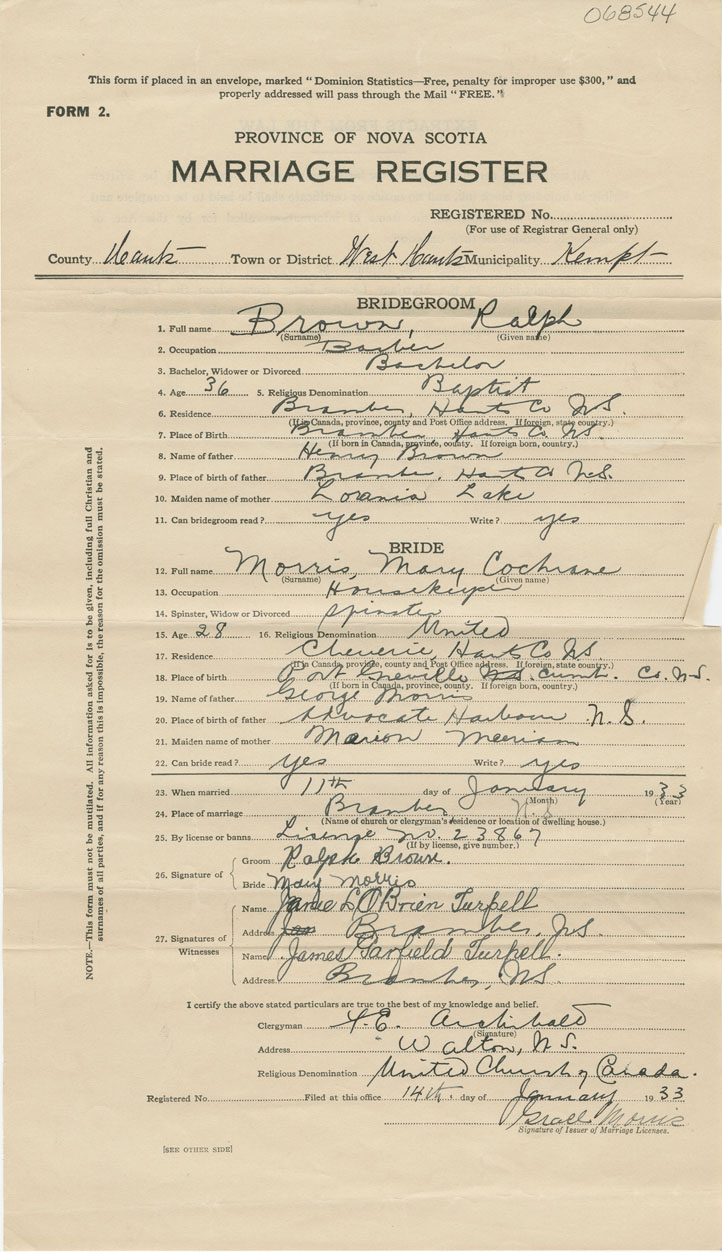 068544
This form if placed in an envelope, marked "Dominion Statistics—Free, penalty for improper use $300," and
properly addressed will pass through the Mail "FREE."
FORM 2.
PROVINCE OF NOVA SCOTIA
MARRIAGE REGISTER
REGISTERED No.
(For use of Registrar General only)
County Hants Town or District West Hants Municipality Kempt
BRIDEGROOM
1. Full name Brown, Ralph
(Surname) (Given name)
2. Occupation Barber
3. Bachelor, Widower or Divorced Bachelor
4. Age 36 5. Religious Denomination Baptist
6. Residence Bramber, Hants Co N.S.
(If in Canada, province, county and Post Office address. If foreign, state country.)
7. Place of Birth Bramber Hants Co. N.S.
(If born in Canada, province, county. If foreign born, country.)
8. Name of father Henry Brown
9. Place of birth of father Brambe, Hants Co N.S.
10. Maiden name of mother Lorania Lake
11. Can bridegroom read? yes Write? yes
BRIDE
12. Full name Morris, Mary Cochrane
(Surname) (Given name)
13. Occupation Housekeeper
14. Spinster, Widow or Divorced Spinster
15. Age 28 16. Religious Denomination United
17. Residence Cheverie, Hants Co N.S.
(If in Canada, province, county and Post Office address. If foreign, state country.)
18. Place of birth Port Greville N.S. Cumb. Co. N.S.
(If born in Canada, province, county. If foreign born, country.)
19. Name of father George Morris
20. Place of birth of father Advocate Harbour N.S.
21. Maiden name of mother Marion Merriam
22. Can bride read? yes Write? yes
23. When married 11th day of January 1933
(Month) (Year)
24. Place of marriage Bramber N.S.
(Name of church or clergyman's residence or location of dwelling house.)
25. By license or banns Lisense no. 23867
(If by license, give number.)
26. Signature of
Groom Ralph Brown.
Bride Mary Morris
27. Signatures of Witnesses
Name Janie L O'Brien Turpell
Address Bramber, N.S.
Name James Garfield Turpell.
Address Bramber, N.S.
I certify the above stated particulars are true to the best of my knowledge and belief.
Clergyman Archibald
(Signature)
Address Walton, N.S.
Religious Denomination United Church of Canada.
Registered No. Filed at this office 14th day of January 1933
Morris
Signature of Issuer of Marriage Licenses.
[SEE OTHER SIDE]
NOTE.—This form must not be mutilated. All information asked for is to be given, including full Christian and
surnames of all parties, and if for any reason this is impossible, the reason for the omission must be stated.